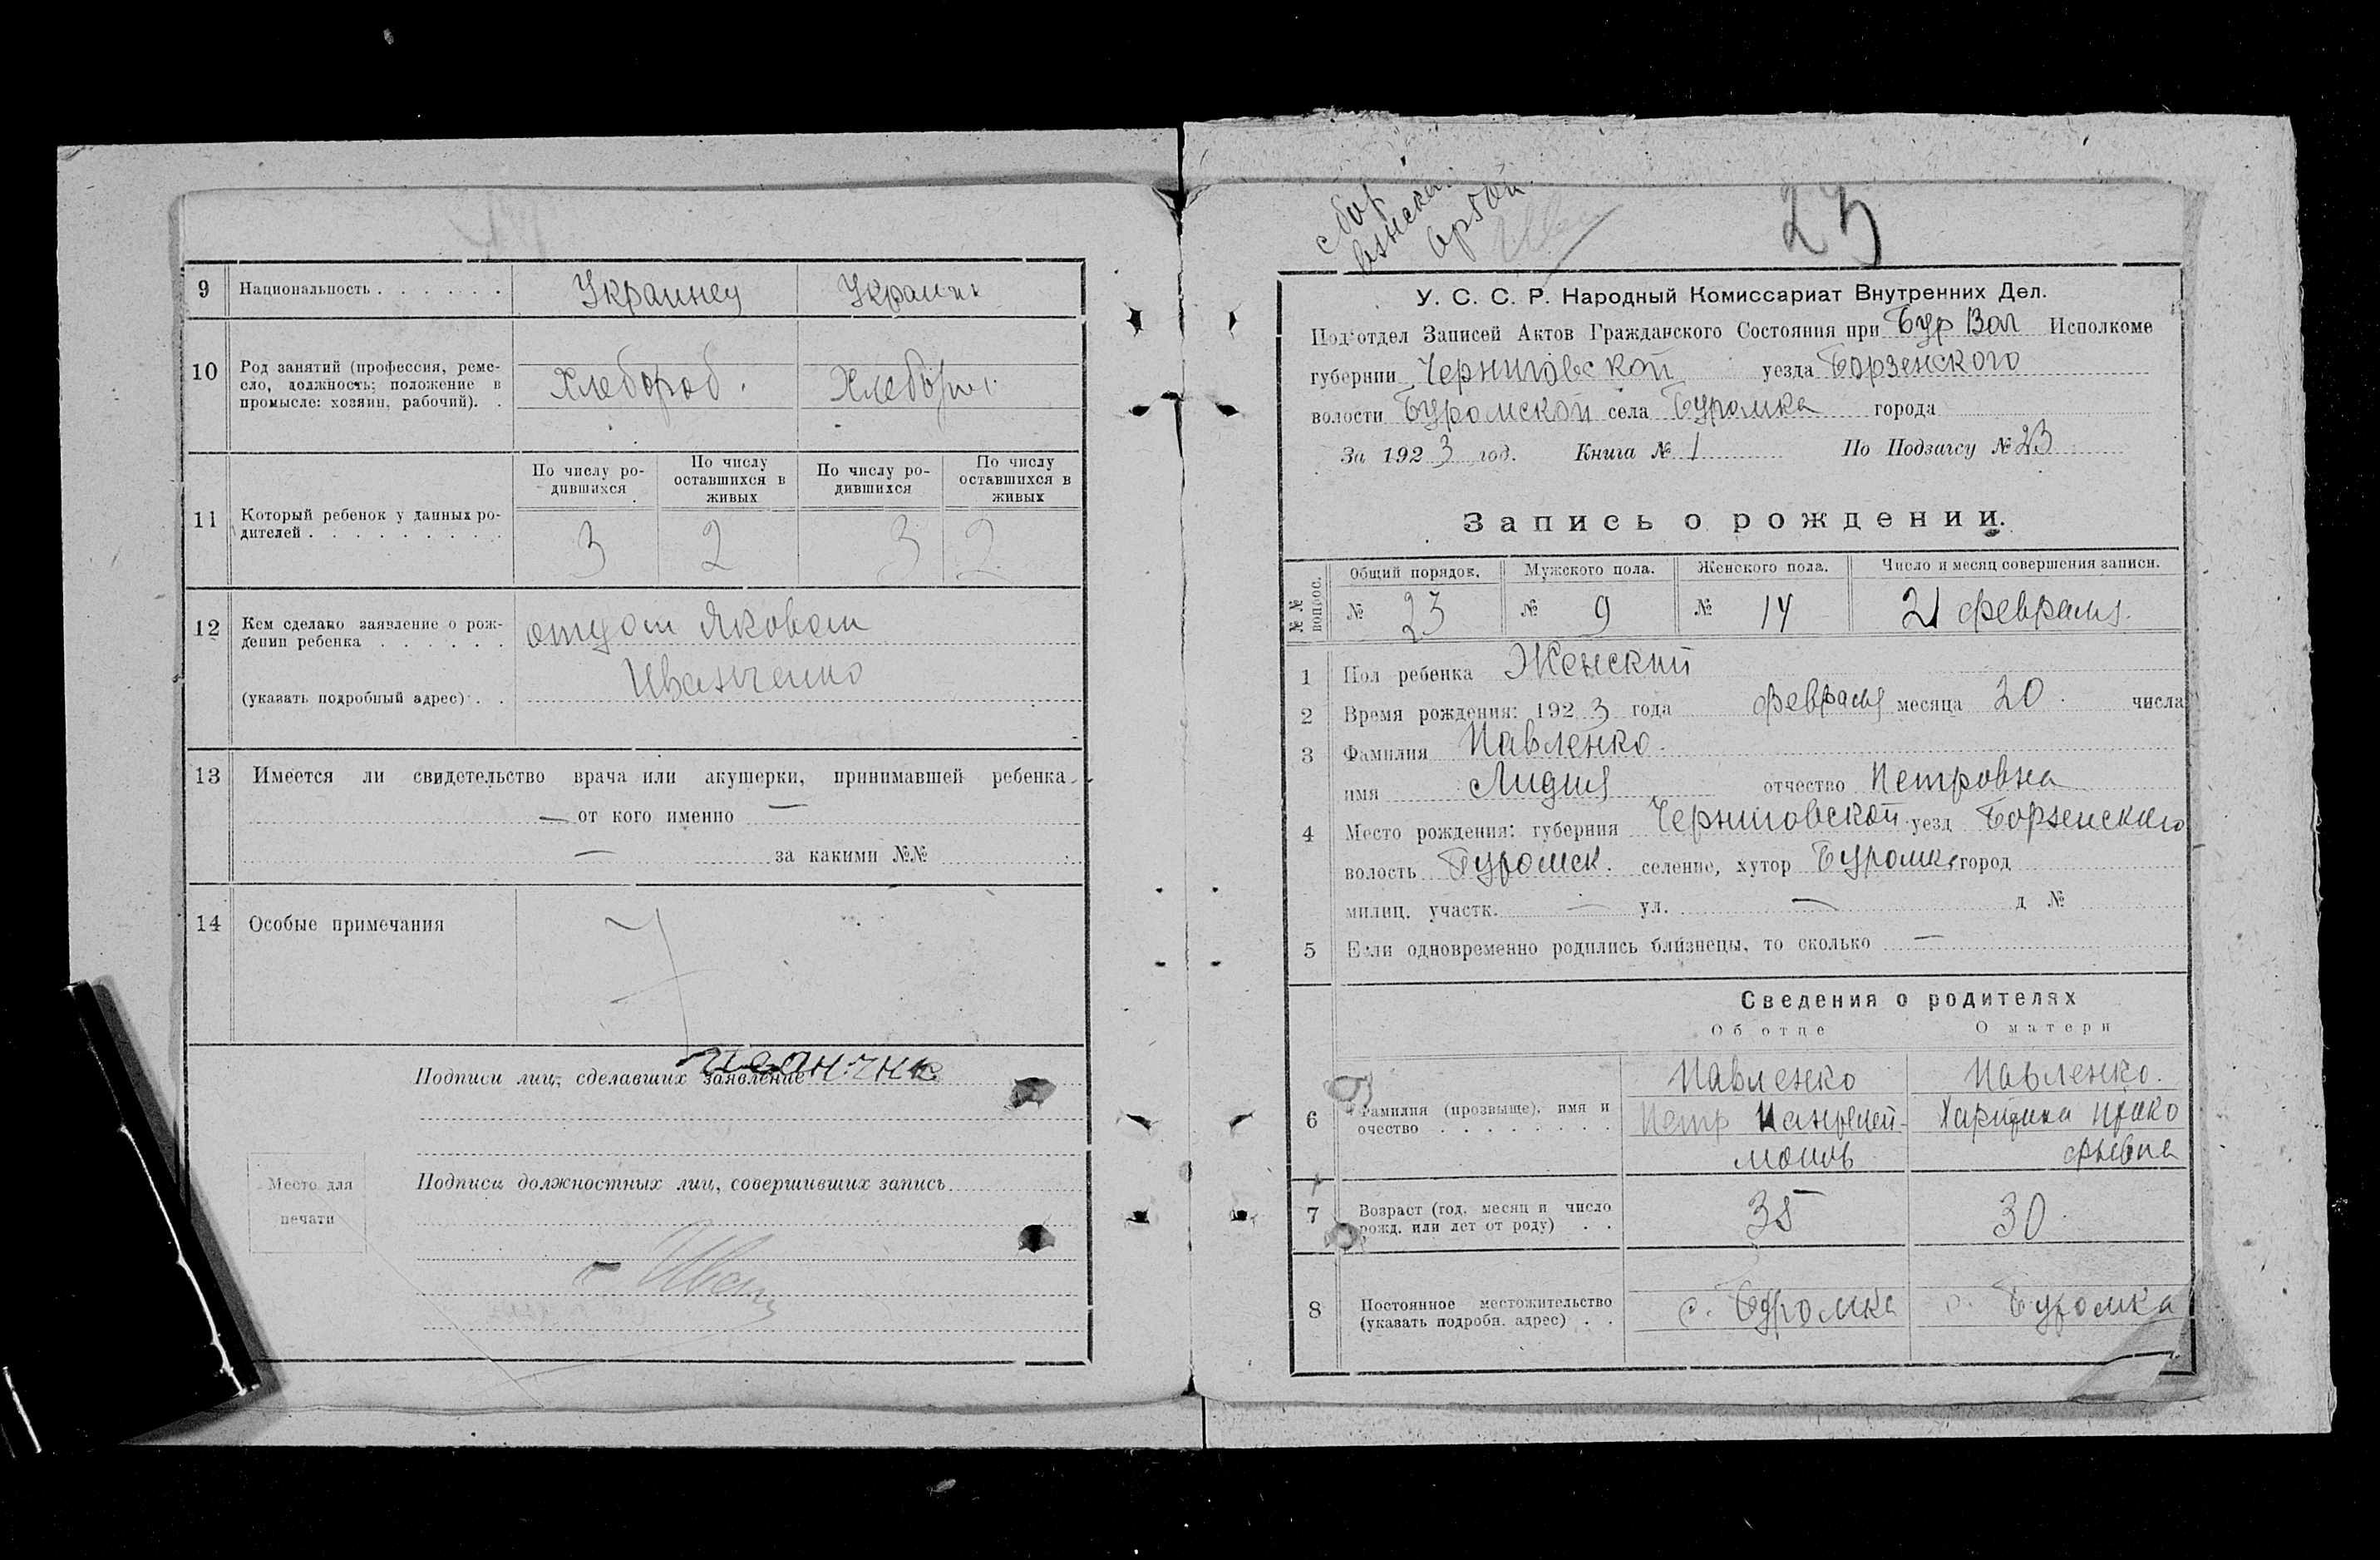 9 Национальность . . . . . . Украинец Украинк
10 Род занятий (профессия, реме-
сло, должность; положение в
промысле: хозяин, рабочий). . Хлебороб. Хлебороб
По числу ро-
дившихся
По числу
оставшихся в
живых
По числу ро-
дившихся
По числу
оставшихся в
живых
11 Который ребенок у данных ро-
дителей . . . . . . . . . 3 2 3 2
12 Кем сделано заявление о рож-
дении ребенка . . . . . . отцом Яковом
Иванченко
(указать подробный адрес) . .
13 Имеется ли свидетельство врача или акушерки, принимавшей ребенка
— от кого именно —
— за какими №№
14 Особые примечания
Подписи лиц, сделавших заявление
Место для
печати
Подписи должностных лиц, совершивших запись
23
У. С. С. Р. Народный Комиссариат Внутренних Дел.
Подотдел Записей Актов Гражданского Состояния при Бур Вол Исполкоме
губернии Черниговской уезда Борзенского
волости Буромской села Буромка города
За 1923 год. Книга № 1 По Подзагсу № 23
Запись о рождении.
№№ вопрос.
Общий порядок. Мужского пола. Женского пола. Число и месяц совершения записи.
№ 23 № 9 № 14 21 февраля.
1 Пол ребенка Женский
2 Время рождения: 1923 года февраля месяца 20. числа
3 Фамилия Павленко.
имя Лидия отчество Петровна
4 Место рождения: губерния Черниговской уезд Борзенского
волость Буромск. селение, хутор Буромка город
милиц. участк. — ул. — д №
5 Если одновременно родились близнецы, то сколько —
Сведения о родителях
Об отце О матери
Павленко Павленко.
6 Фамилия (прозвище), имя и
очество . . . . . . . . Петр Харитина Проко
фьевна
7 Возраст (год, месяц и число
рожд. или лет от роду) . . 35 30
8 Постоянное местожительство
(указать подробн. адрес) . . с. Буромка с. Буромка